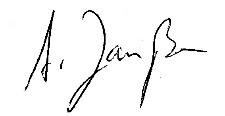 A. Janßen